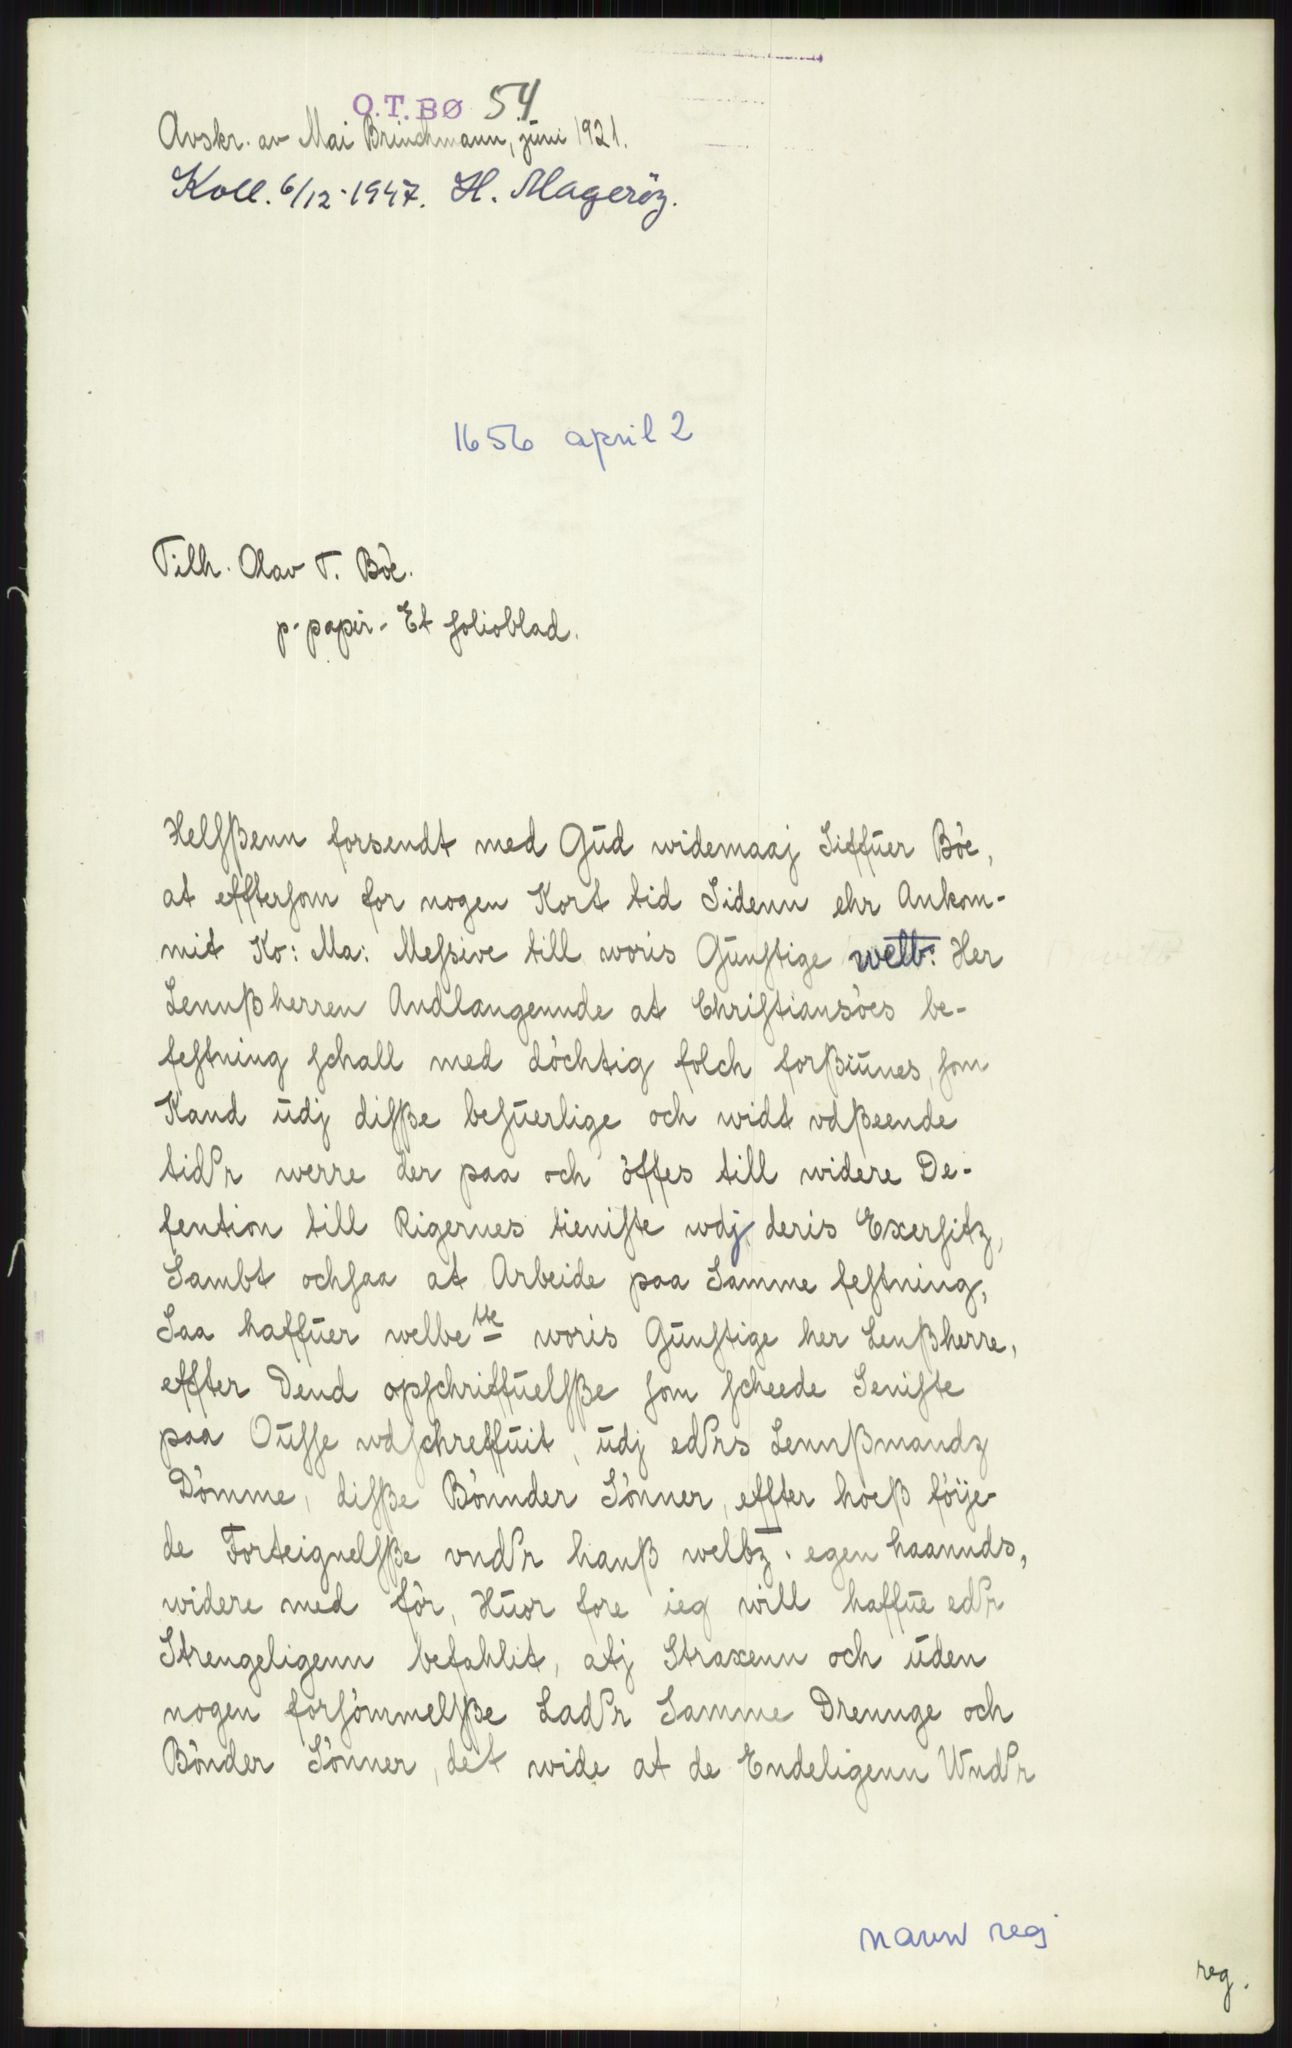 O.T.BØ 54
Avskr. av Mai Brinchmann, juni 1921.
Koll. 6/12-1947. H. Mageröy.
1656 april 2
Tilh. Olav T. Böe.
p. papir - Et folioblad.
Helſßenn forsendt med Gud widemaaj Siffuer Böe,
at efftersom for nogen Kort tid Sidenn ehr Ankom-
mit Ko: Ma: Meſsive till woris Gunſtige welb: Her
Lennßherren Andlangennde at Chriſtiansöes be-
feſtning ſchall med döchtig folch forßiunes, ſom
Kand udj diſße beſuerlige och widt vdßeende
tider werre der paa och öffes till widere De-
fention till Rigernes tieniſte wdj deris Exerſitz,
Sambt ochſaa at Arbeide paa Samme feſtning,
Saa haffuer welbette woris Gunſtige her Lenßherre,
effter Dend opſchriffuelſße ſom ſcheede Seniſte
paa Ouſſe wdſchreffuit, udj eders Lennßmandz
Dömme, diſße Bönnder Sönner, effter hoeß föije-
de Forteignelſße vnder hanß welbz. egen haannds,
widere med för, Huor fore ieg will haffue eder
Strengeligenn befahlit, atj Straxenn och uden
nogen forſömmelſße Lader Samme Drennge och
Bönder Sönner, det wide at de Endeligenn Under
navn reg
reg.